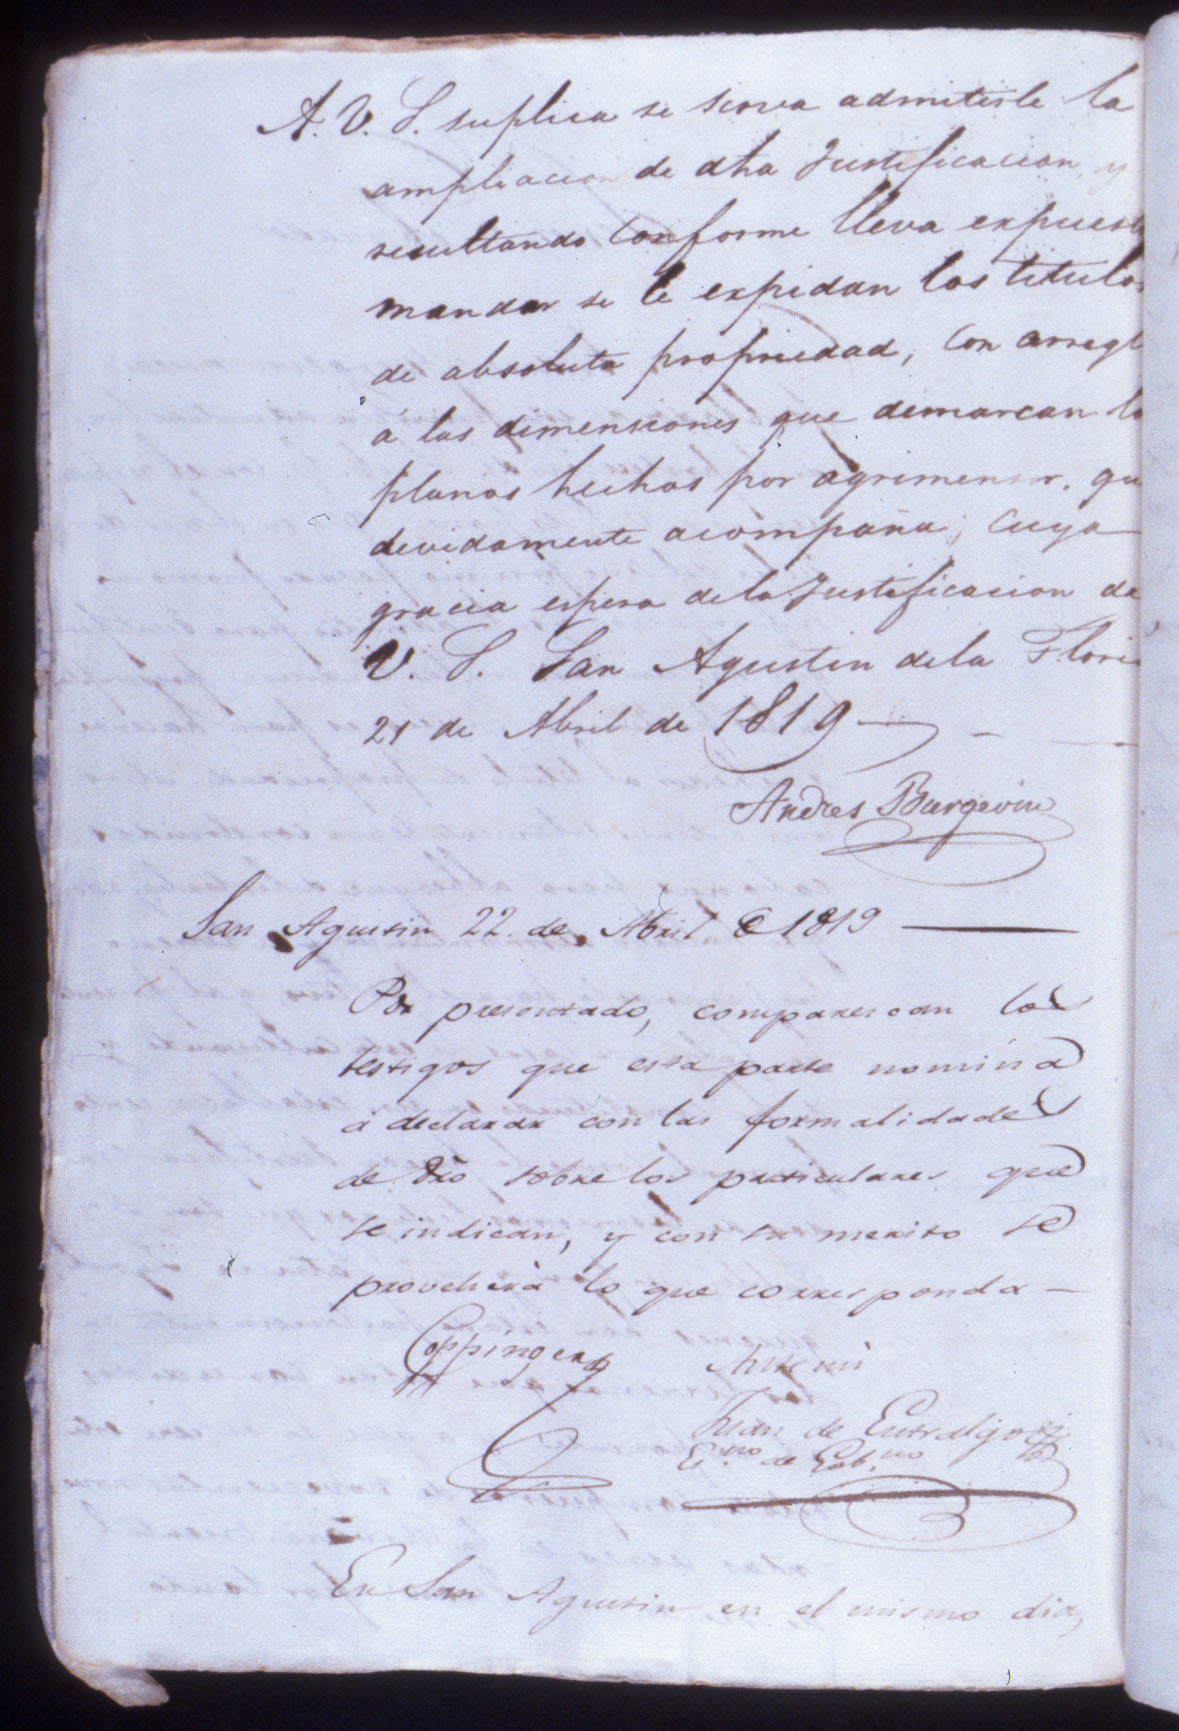 A. V. S. suplica se sirva admitirle la
ampliacion de dha Justificacion, y
resultando conforme lleva expuest
mandar se le expidan los titulos
de absoluta propriedad, con arregl
á las dimensiones que demarcan lo
planos hechos por agrimensor, qu
devidamente acompaña; cuya
gracia espera dela Justificacion de
V. S. San Agustin dela Flori
21 de Abril de 1819
Andres Burgevin
San Agustin 22 de Abril de 1819
Por presentado, comparescan los
testigos que esta parte nomina
á declarar con las formalidades
de dro sobre los particulares que
se indican, y con su merito se
provehera lo que corresponda
Coppinger
Ante mi
Juan de Entralgo
Es.no de Gob.no
En San Agustin en el mismo dia,